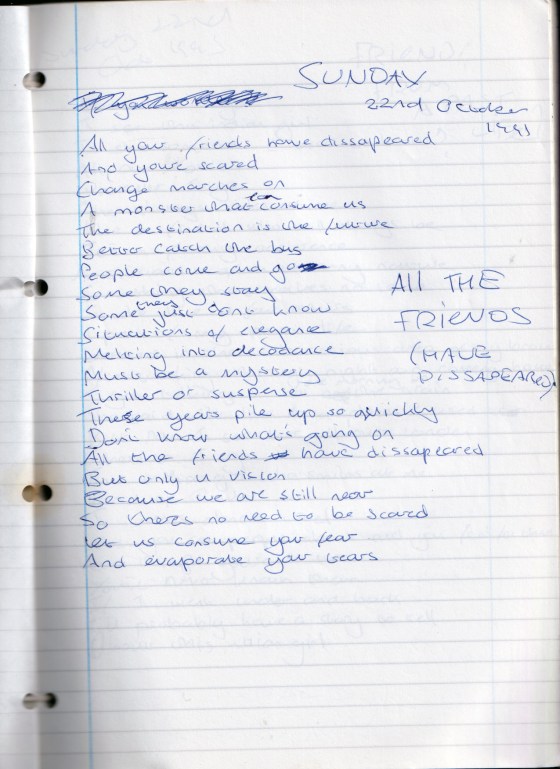 SUNDAY
22nd October
1991
All your friends have dissapeared
And you're scared
Change marches on
A monster that can consume us
The destination is the future
Better catch the bus
People come and go
Some they stay
Some they just dont know
Situations of elegance
Melting into decadance
Must be a mystery
Thriller or suspense
These years pile up so quickly
Don't know what's going on
All the friends have dissapeared
But only in vision
Because we are still near
So theres no need to be scared
Let us consume your fear
And evaporate your tears
All THE
FRIENDS
(HAVE
DISSAPEARED)